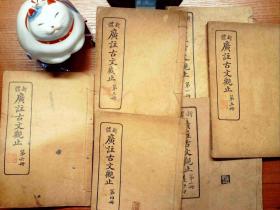 新體
廣註古文觀止
第六冊
新體
廣註古文觀止
第三冊
新體
廣註古文觀止
第四冊
新體
廣註古文觀止
新體
廣註古文觀止
第五冊